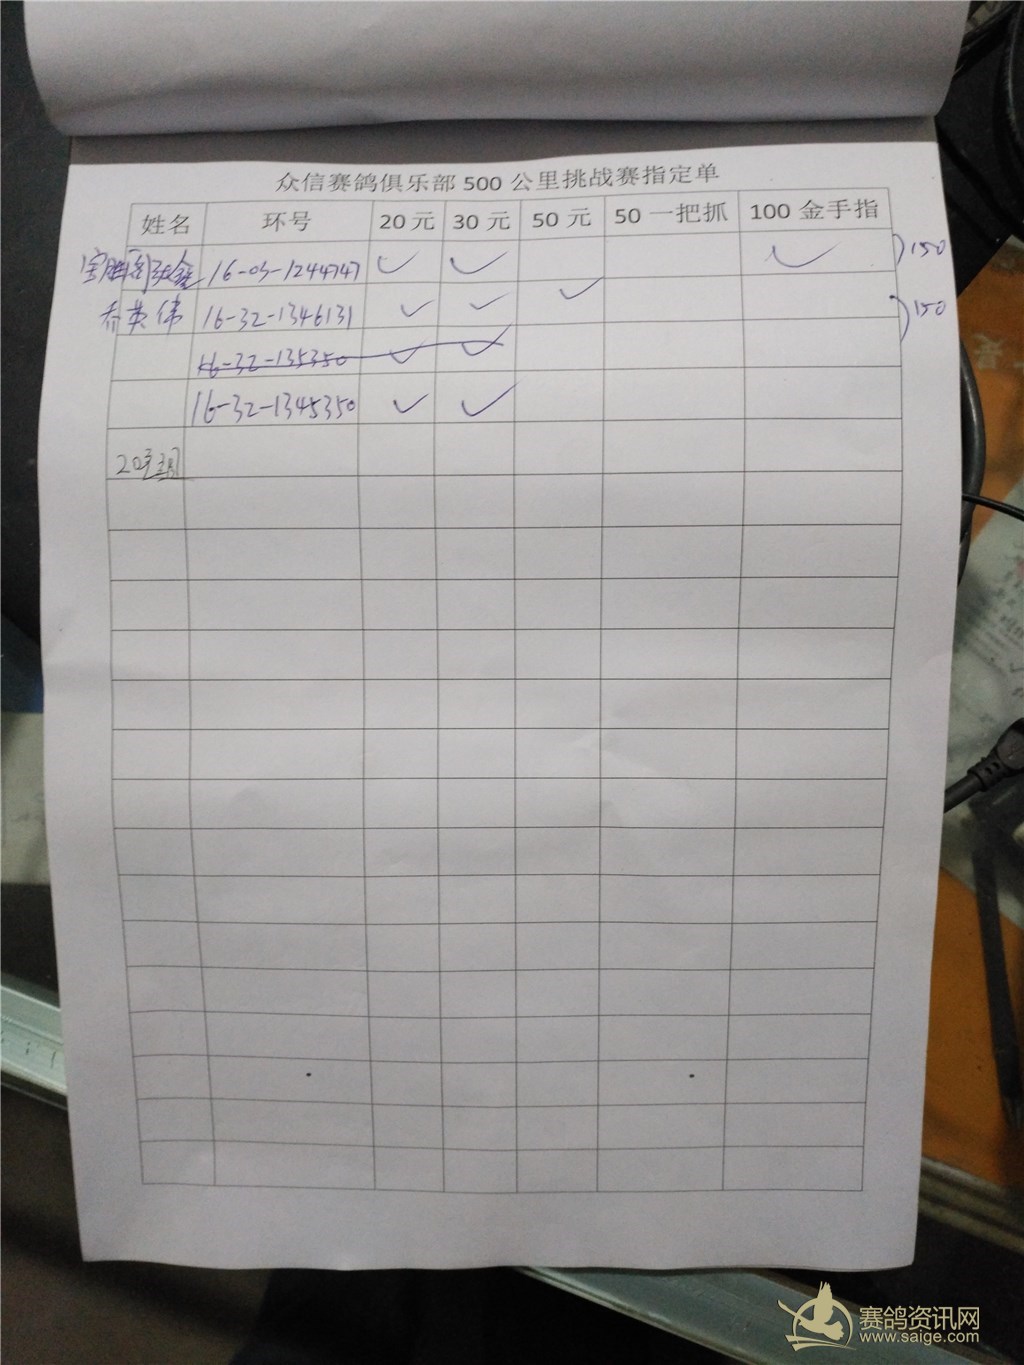 众信赛鸽俱乐部500公里挑战赛指定单
姓名 环号 20元 30元 50元 50一把抓 100金手指
16-03-1244747 ✓ ✓ ✓ 150
乔英伟 16-32-1346131 ✓ ✓ ✓ 150
16-32-135350 ✓ ✓
16-32-1345350 ✓ ✓
赛鸽资讯网
www.saige.com